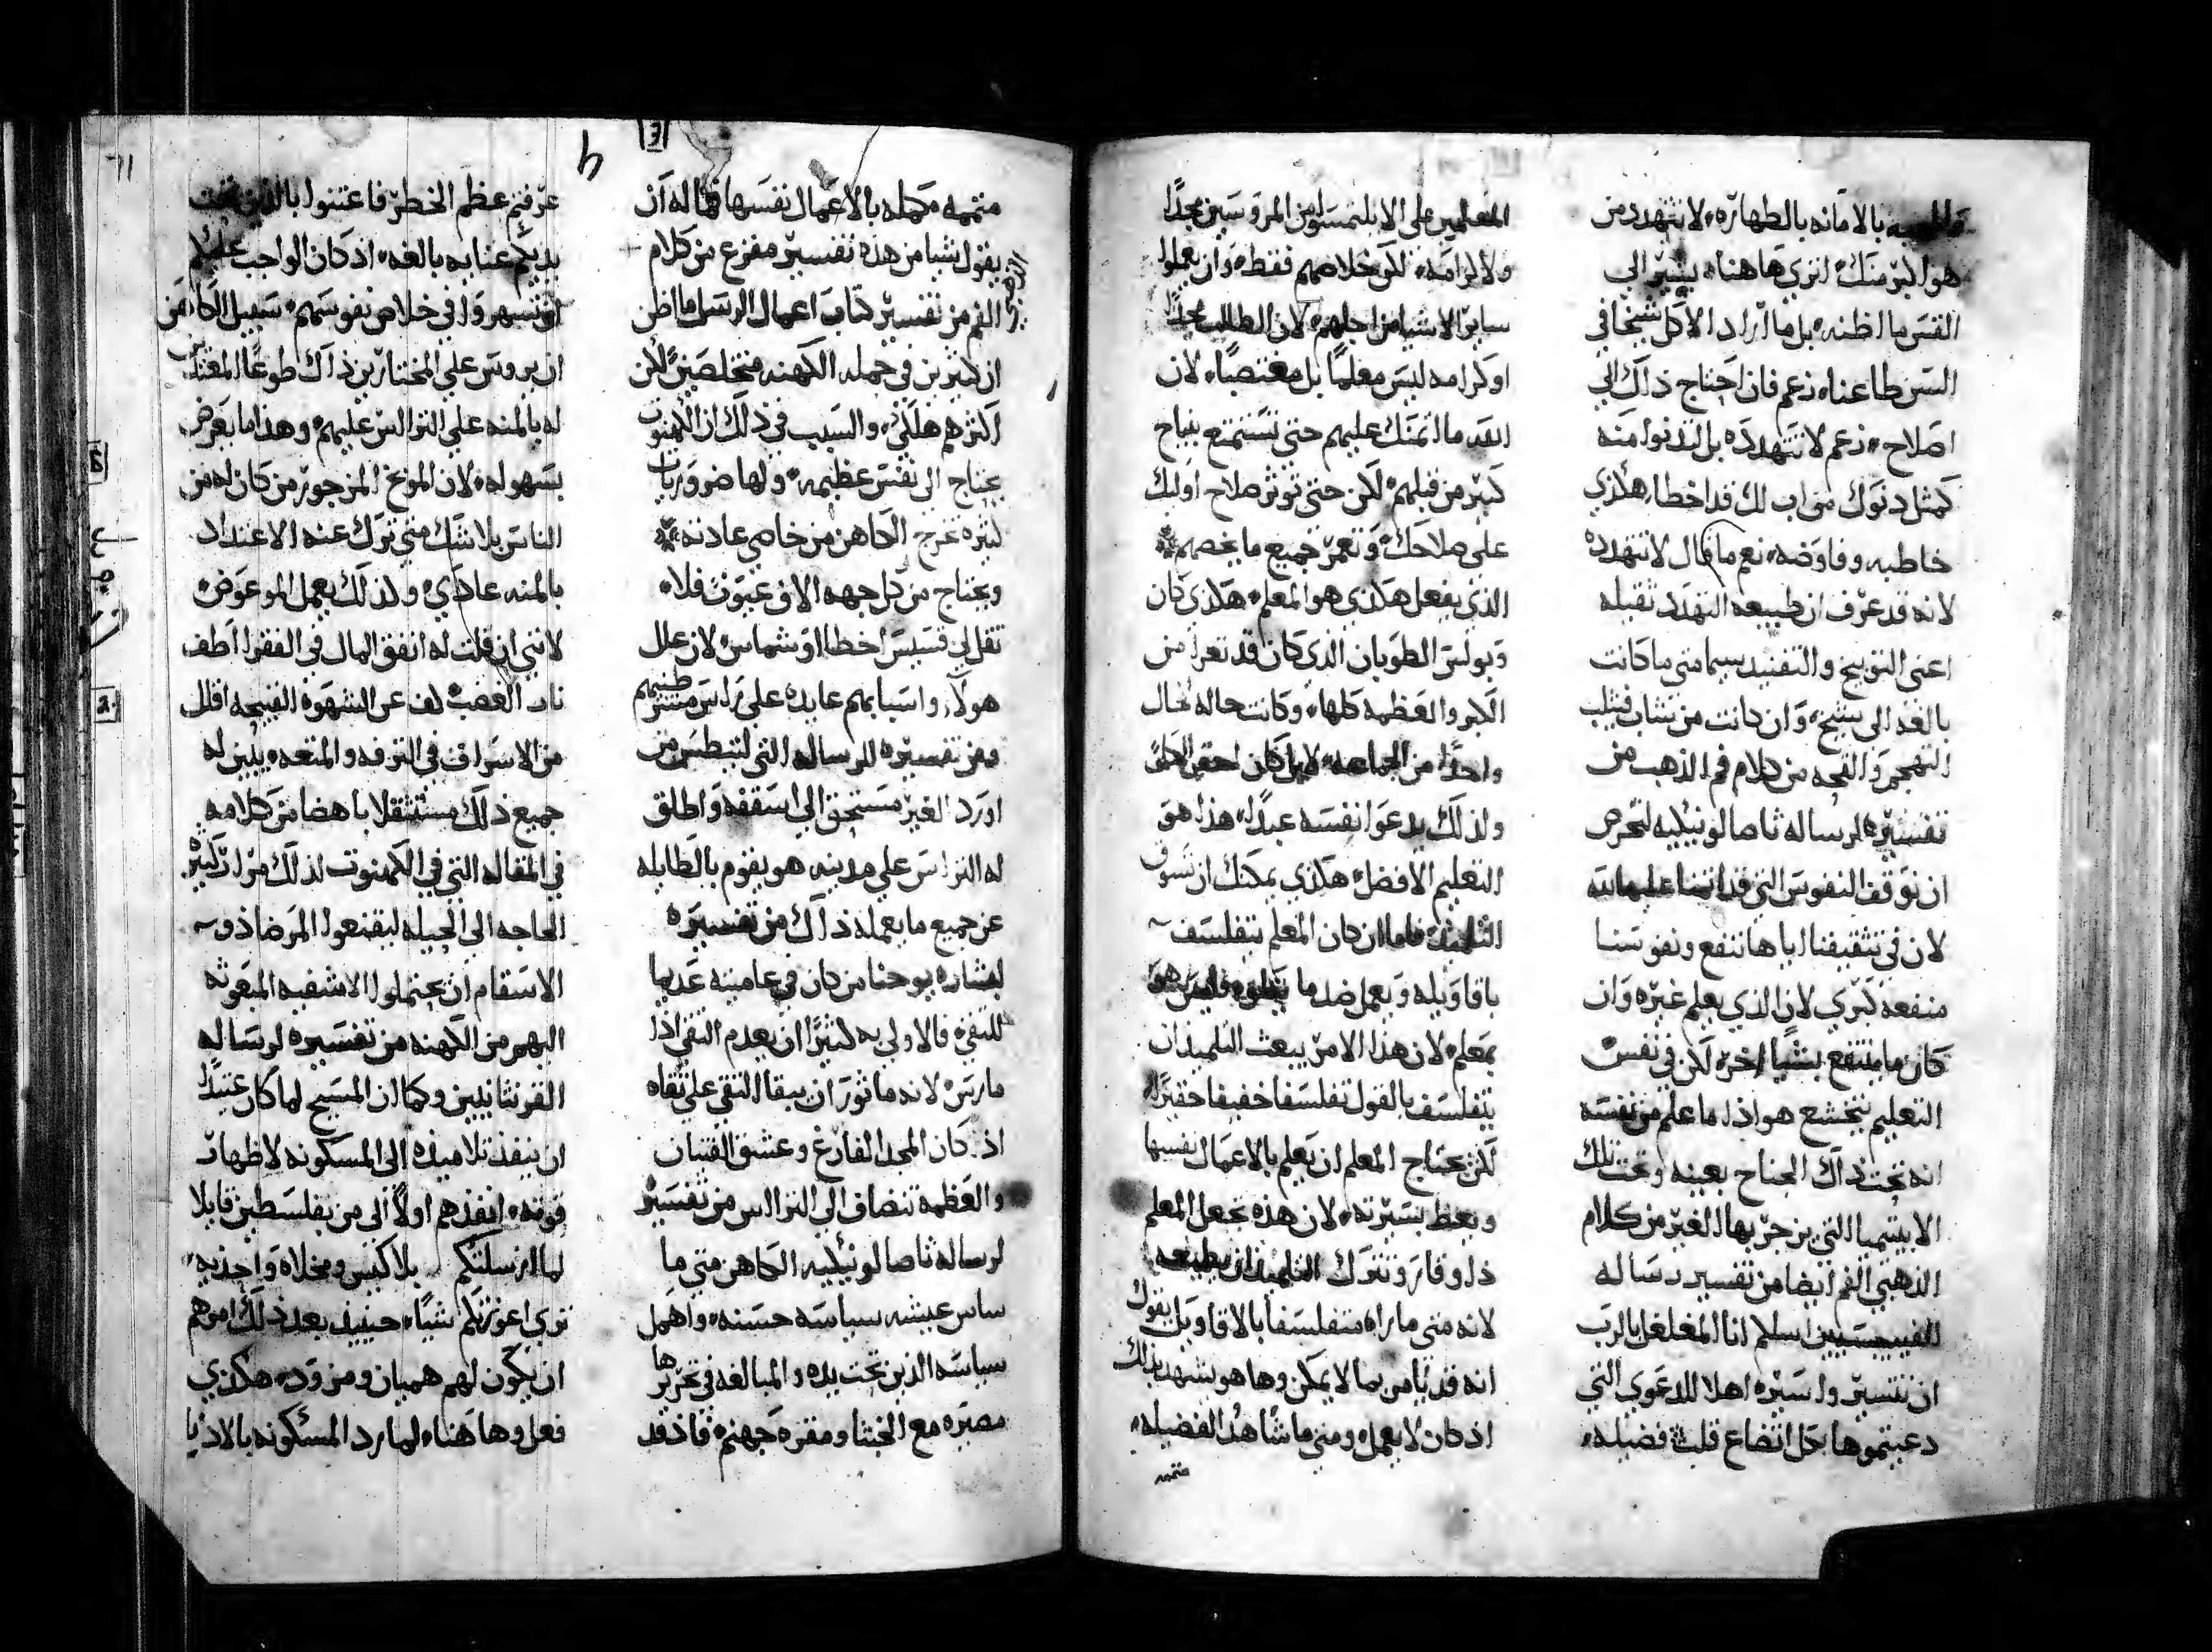 بالامانه بالطهاره، لا تتهدد من
هو اكبر منك، اتري هاهنا، يشير الي
القس ما اظنه، بل ما اراد الا كل شيخا في
السن طاعنا، زعم فان احتاج ذاك الي
اصلاح، زعم لا تتهدده بل لتدنوا منه
كمثل دنوك من اب لك قد اخطا، هكذي
خاطبه وفاوضه، نعم ما قال لا تتهدده
لانه قد عرف ان طبيعه التهدد ثقيله
اعني التوبيخ والتفنيد سيما متي ما كانت
بالغه الي شيخ، وان كانت من شاب فتلب
التهجم والقحه من كلام فم الذهب من
تفسيره لرساله ثاصالونيكيه لنحرص
ان نوقف النفوس التي قد اتمننا عليها الله
لان في تثقيفنا اياها ننفع ونفوسنا
منفعه كبري لان الذي يعلم غيره وان
كان ما ينتفع بشيا اخر، لكن في نفس
التعليم يتخشع هو اذا ما علم من نفسه
انه تحت ذاك الجناح بعينه وتحت تلك
الايتيميا التي يزجر بها الغير من كلام
الذهبي الفم ايضا من تفسير رساله
الفيبيسيين اسلم انا المغلغل بالرب
ان تسير واسيره اهلا للدعوي التي
دعيتموها بكل اتضاع قلب فضيله،
المعلمين علي الا يلتمسوا من المروسين مجدا
ولا كرامه، لكن خلاصهم فقط، وان يعملوا
ساير الاشيا من اجلهم، لان الطالب مجدا
او كرامه ليس معلما بل مغتصبا، لان
الله ما اتمنك عليهم حتي تستمتع بنياح
كبير من قبلهم، لكن حتي توثر صلاح اوليك
علي صلاحك، وتعمر جميع ما يخصهم
الذي يفعل هكذي هو المعلم، هكذي كان
وبولس الطوبان الذي كان قد تعرا من
الكبر والعظمه كلها، وكانت حاله كحال
واحدا من الجماعه، لا بل كان احقر الكل
ولذلك يدعوا نفسه عبدا، هذا هو
التعليم الافضل، هكذي يمكنك ان تسوق
التلاميذ، فاما ان كان المعلم يتفلسف
باقاويله ويعمل ضد ما يقوله فليس هو
بمعلم، لان هذا الامر يبعث التلميذ ان
يتفلسف بالقول تفلسفا خفيفا حقيرا،
لكن يحتاج المعلم ان يعلم بالاعمال نفسها
ويعظ بسيرته، لان هذه تجعل المعلم
ذا وقار وتترك التلميذ ان يطيعه
لانه متي ما راه متفلسفا بالاقاويل يقول
انه قد يامر بما لا يمكن وها هو يشهد بذلك
اذ كان لا يعمل، ومتي ما شاهد الفضيله،
متممه
متممه مكمله بالاعمال نفسها فما له ان
يقول شيا من هذه تفسير مفزع من كلام
الفم من تفسير كتاب اعمال الرسل ما اظن
ان كثيرين في جمله الكهنه متخلصين لكن
اكثرهم هلكي، والسبب في ذلك ان الكهنوت
يحتاج الي نفس عظيمه، ولها ضرورات
كثيره تخرج الكاهن من خاصي عادته
ويحتاج من كل جهه الاف عيون فلا،
تقل لي قسيس اخطا او شماس، لان علل
هولا، واسبابهم عايده علي راس مشرطنيهم
ومن تفسيره للرساله التي لتيطس من
اورد الغير مستحق الي اسقفه واطلق
له التراس علي مدينه هو يقوم بالطايله
عن جميع ما يعمله ذاك من تفسيره
لبشاره يوحنا من كان في عاميته عديما
للتقي، فالاولي به كثيرا ان يعدم التقي اذا
ما ريس، لانه ما ثور ان يبقا التقي علي تقاه
اذ كان المجد الفارغ وعشق القنيان
والعظمه تنضاف الي التراس من تفسير
لرساله ثاصالونيكيه الكاهن متي ما
ساس عيشه سياسه حسنه، واهمل
سياسه الذين تحت يده والمبالغه في تحريزها
مصيره مع الخبثا ومقره جهنم، فاذ قد
عرفتم عظم الخطر فاعتنوا بالذين تحت
يديكم عنايه بالغه، اذ كان الواجب عليكم
ان تسهروا في خلاص نفوسهم، سبيل الكاهن
ان يروس علي المختارين ذاك طوعا المقتاد
له بالمنه علي التراس عليهم، وهذا ما يعرض
بسهوله، لان الموبخ المزجور من كان له من
الناس بلا شك متي ترك عنه الاعتداد
بالمنه عادي، ولذلك يعمل الموعوض
لانني ان قلت له انفق المال في الفقرا اطف
نار الغضب كف عن الشهوه القبيحه اقلل
من الاسراف في الترفه والمتعه، يبين له
جميع ذلك مستثقلا باهضا من كلامه
في المقاله التي في الكهنوت لذلك مرارا كثيره
الحاجه الي الحيله ليقتنعوا المرضا ذو
الاسقام ان يحتملوا الاشفيه المبعوثه
اليهم من الكهنه من تفسيره لرساله
القرنثانيين وكما ان المسيح لما كان عتيدا
ان ينفذ تلاميذه الي المسكونه لاظهار
قوته، انفذهم اولا الي من بفلسطين قايلا
لما ارسلتكم بلا كيس ومخلاه واحذيه
تري اعوزتكم شيا، حينيذ بعد ذلك امرهم
ان يكون لهم هميان ومزود، هكذي
فعل وهاهنا، لما رد المسكونه بالاذيا